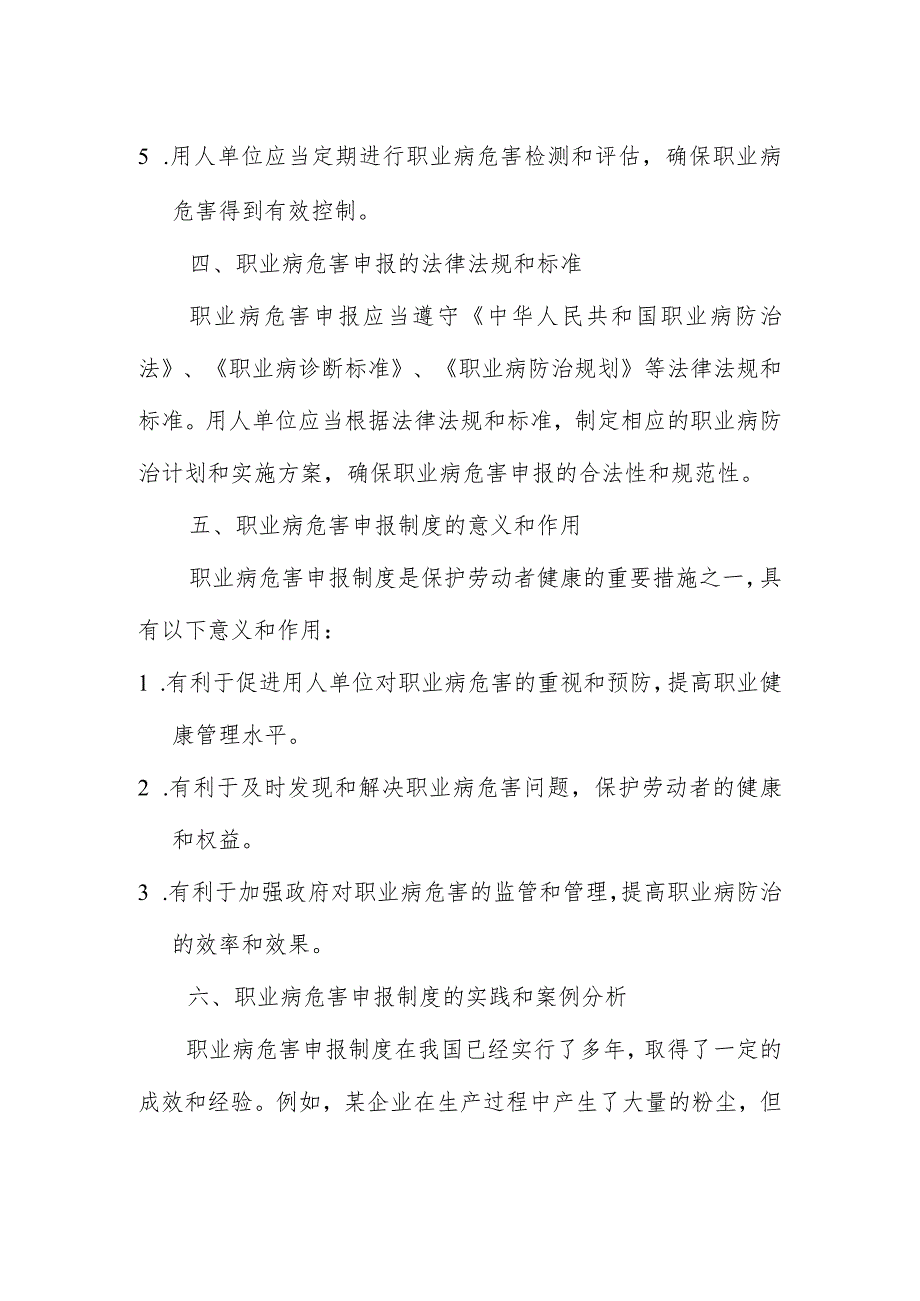 5 .用人单位应当定期进行职业病危害检测和评估，确保职业病
危害得到有效控制。
四、职业病危害申报的法律法规和标准
职业病危害申报应当遵守《中华人民共和国职业病防治
法》、《职业病诊断标准》、《职业病防治规划》等法律法规和
标准。用人单位应当根据法律法规和标准，制定相应的职业病防
治计划和实施方案，确保职业病危害申报的合法性和规范性。
五、职业病危害申报制度的意义和作用
职业病危害申报制度是保护劳动者健康的重要措施之一，具
有以下意义和作用：
1 .有利于促进用人单位对职业病危害的重视和预防，提高职业健
康管理水平。
2 .有利于及时发现和解决职业病危害问题，保护劳动者的健康
和权益。
3 .有利于加强政府对职业病危害的监管和管理，提高职业病防治
的效率和效果。
六、职业病危害申报制度的实践和案例分析
职业病危害申报制度在我国已经实行了多年，取得了一定的
成效和经验。例如，某企业在生产过程中产生了大量的粉尘，但